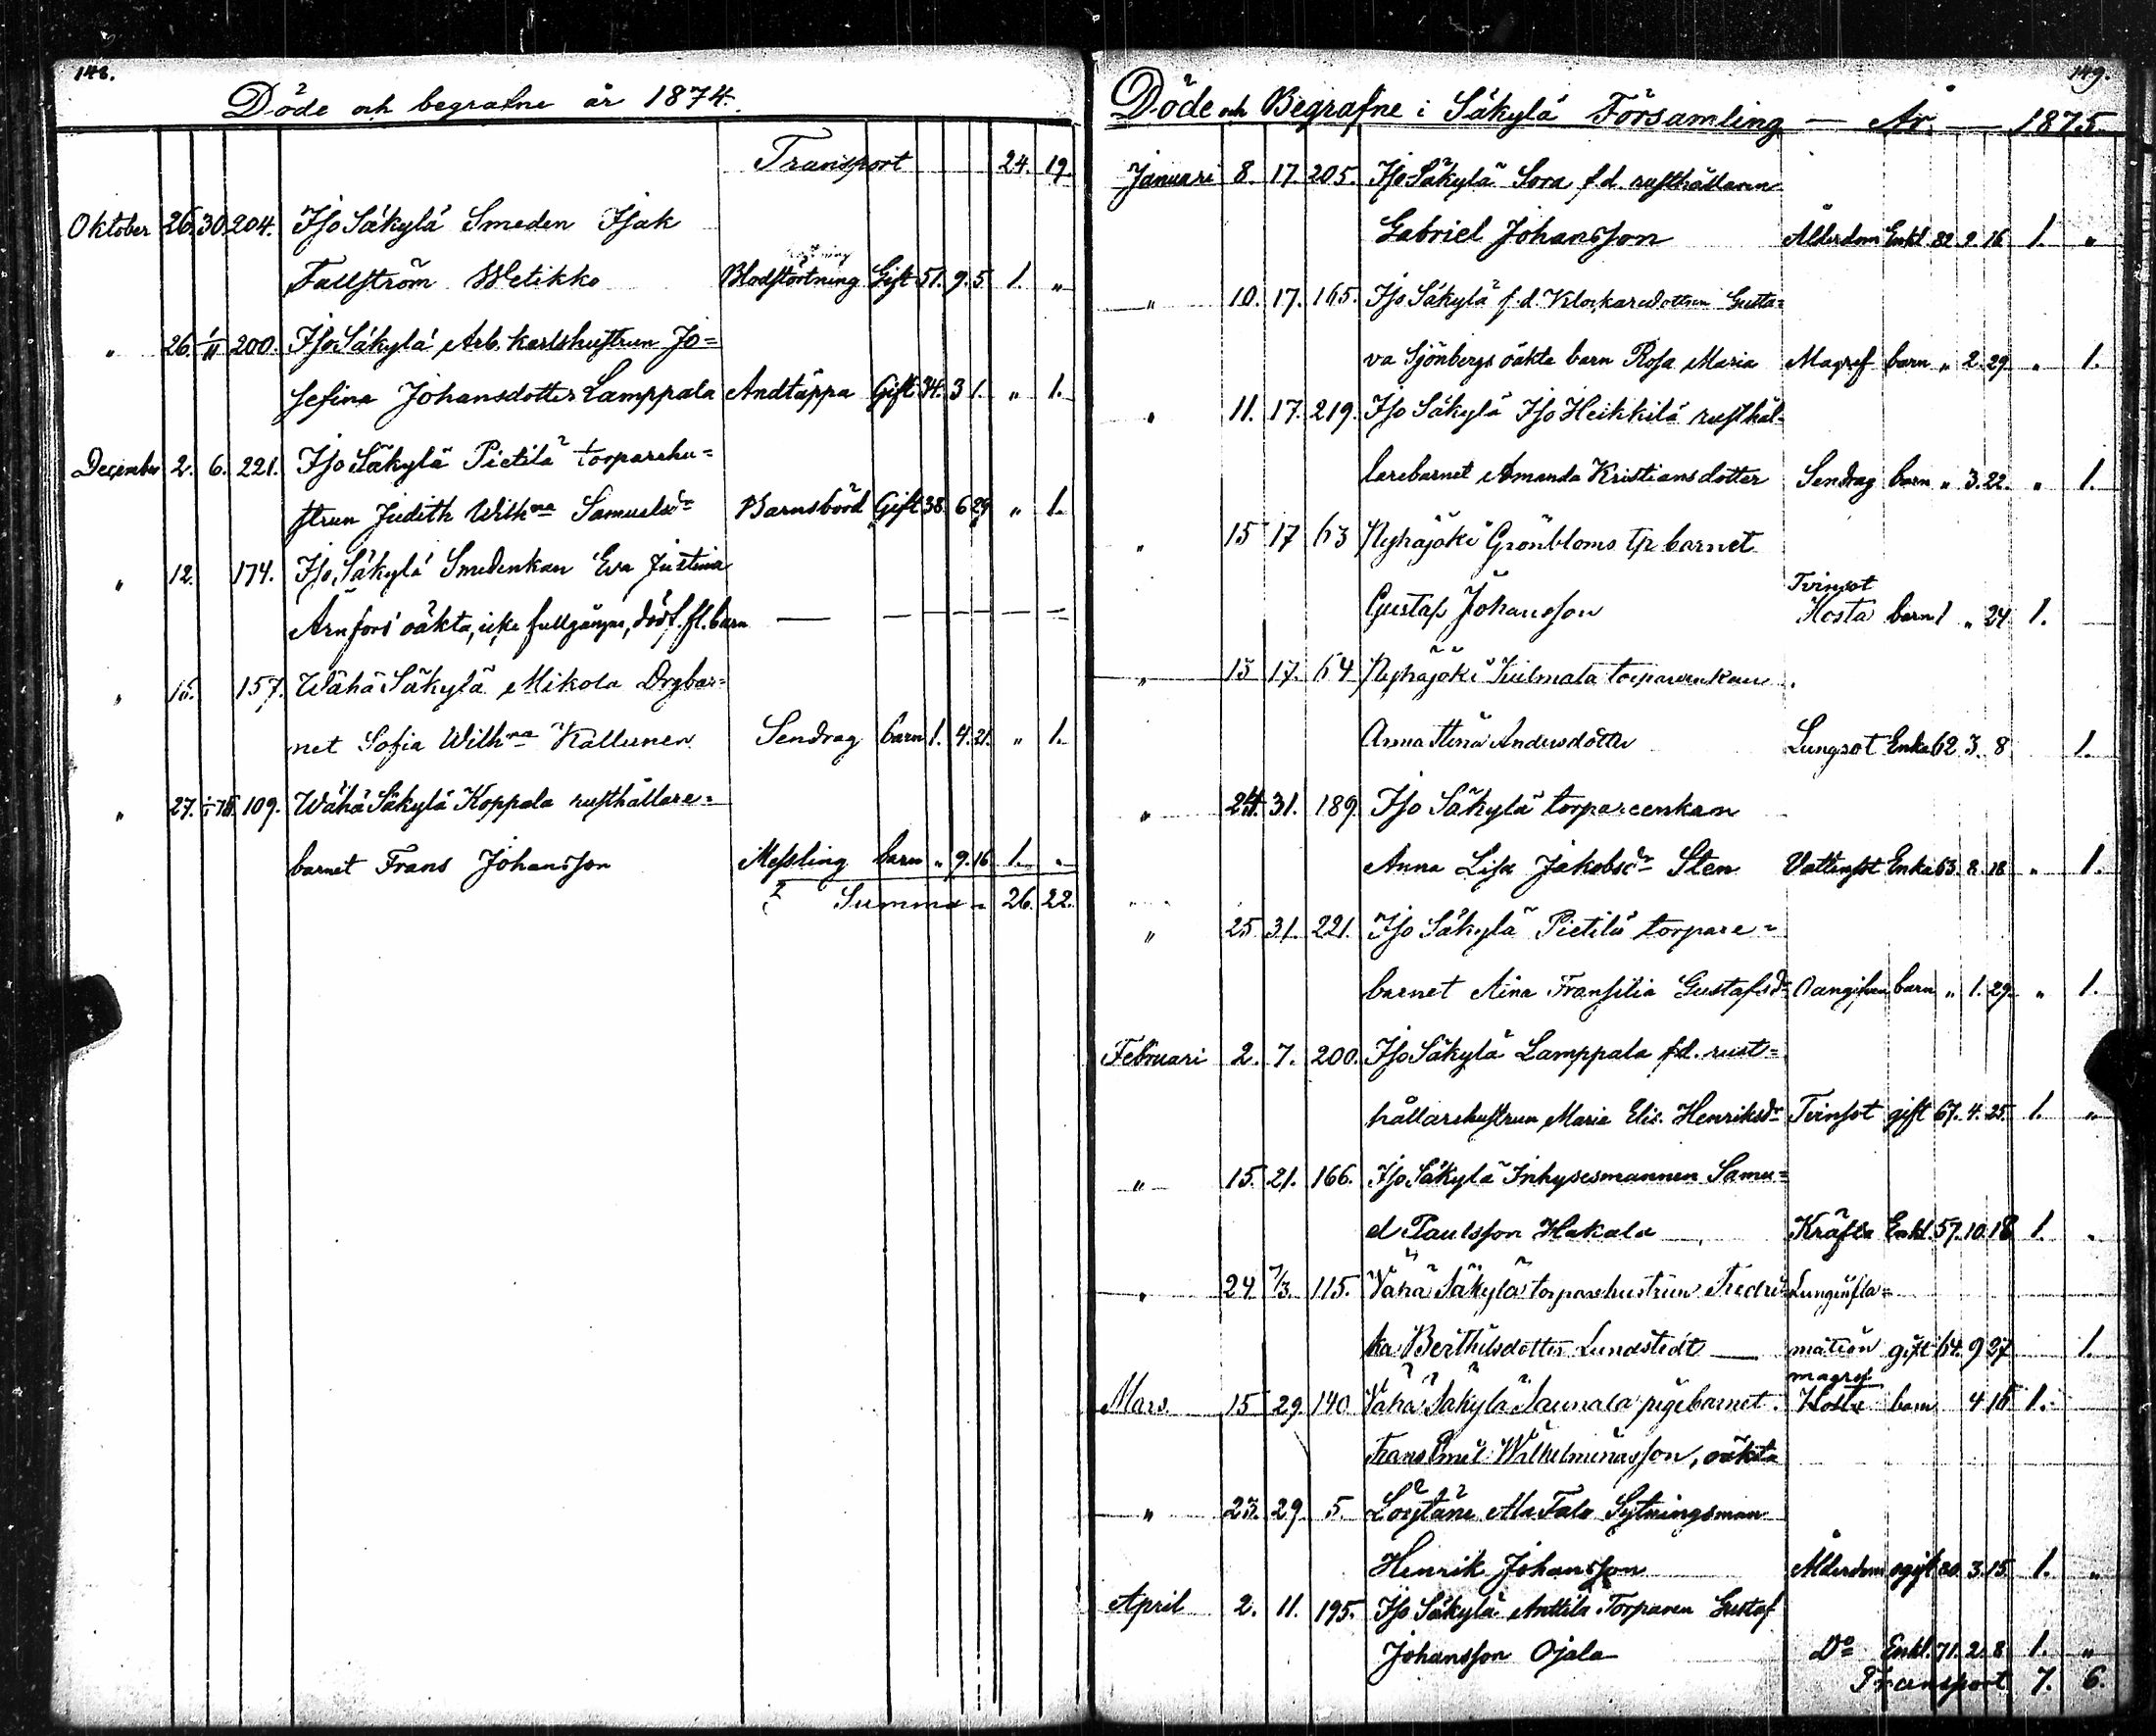 148.
Döde och begrafne år 1874.
Transport 24. 19.
Oktober 26. 30. 204. Iso Säkylä Smeden Isak
Fallström Metikko Blodstörtning Gift 51. 9. 5. 1. "
" 26. 1/11 200. Iso Säkylä Arb. karlshustrun Jo=
sefina Johansdotter Lamppala Andtäppa Gift 34. 3 1. " 1.
December 2. 6. 221. Iso Säkylä Pietilä torparehu=
strun Judith Wilhna Samuelsdr Barnsbörd Gift 38. 6 29 " 1.
" 12. 174. Iso Säkylä Smedenkan Eva Justina
Arnfors oäkta, icke fullgångna, dödf. fl. barn — — — — — —
" 157. Wähä Säkylä Mikola Drgbar=
net Sofia Wilhna Kallunen Sendrag barn 1. 4. 21. " 1.
" 27. 109. Wähä Säkylä Koppala rusthållare=
barnet Frans Johansson Messling barn " 9. 16 1. "
Summa 26. 22.
149.
Döde och Begrafne i Säkylä Församling — År — 1875.
Januari 8. 17. 205. Iso Säkylä Sora f.d. rusthållaren
Gabriel Johansson Ålderdom Enkl. 82. 9. 16 1. "
" 10. 17. 165. Iso Säkylä f.d. Klockaredottren Gusta=
va Sjönbergs oäkta barn Rosa Maria Magref barn " 2. 29. " 1.
" 11. 17. 219. Iso Säkylä Iso Heikkilä rusthål=
larebarnet Amanda Kristiansdotter Sendrag barn " 3. 22. " 1.
" 15 17 63 Pyhäjoki Grönbloms tp barnet
Tvinsot
Gustaf Johansson Hosta barn 1 " 24 1.
" 15 17. 64 Pyhäjoki Kuilmata torpareenkan
Anna Stina Andersdotter Lungsot Enka 62 3. 8 1.
" 24. 31. 189. Iso Säkylä torpareenkan
Anna Lisa Jakobsdr Sten Vattensot Enka 63. 8. 18 " 1.
" 25 31. 221. Iso Säkylä Pietilä torpare=
barnet Aina Fransilia Gustafsdr Oangifven barn " 1. 29. " 1.
Februari 2. 7. 200. Iso Säkylä Lamppala f.d. rust=
hållarehustrun Maria Elis. Henriksdr Tvinsot gift 67. 4. 25. 1. "
" 15. 21. 166. Iso Säkylä Inhysesmannen Samu=
el Paulsson Hakala Kräfta Enkl. 57. 10. 18 1. "
" 24 7/3. 115. Vähä Säkylä torparehustrun Fredri= Lunginfla=
ka Berthilsdotter Lundstedt — mation gift 64. 9 27 1.
magref
Mars. 15 29. 140 Vähä Säkylä Saunala pigebarnet Hosta barn 4 18 1.
Frans Emil Wilhelminasson, oäkta
" 23. 29 5. Löytäne Ala Talo Sytningsman
Henrik Johansson Ålderdom ogift 80. 3. 15. 1. "
April 2. 11. 195. Iso Säkylä Anttila Torparen Gustaf
Johansson Ojala Do Enkl. 71. 2. 8 1. "
Transport 7. 6.